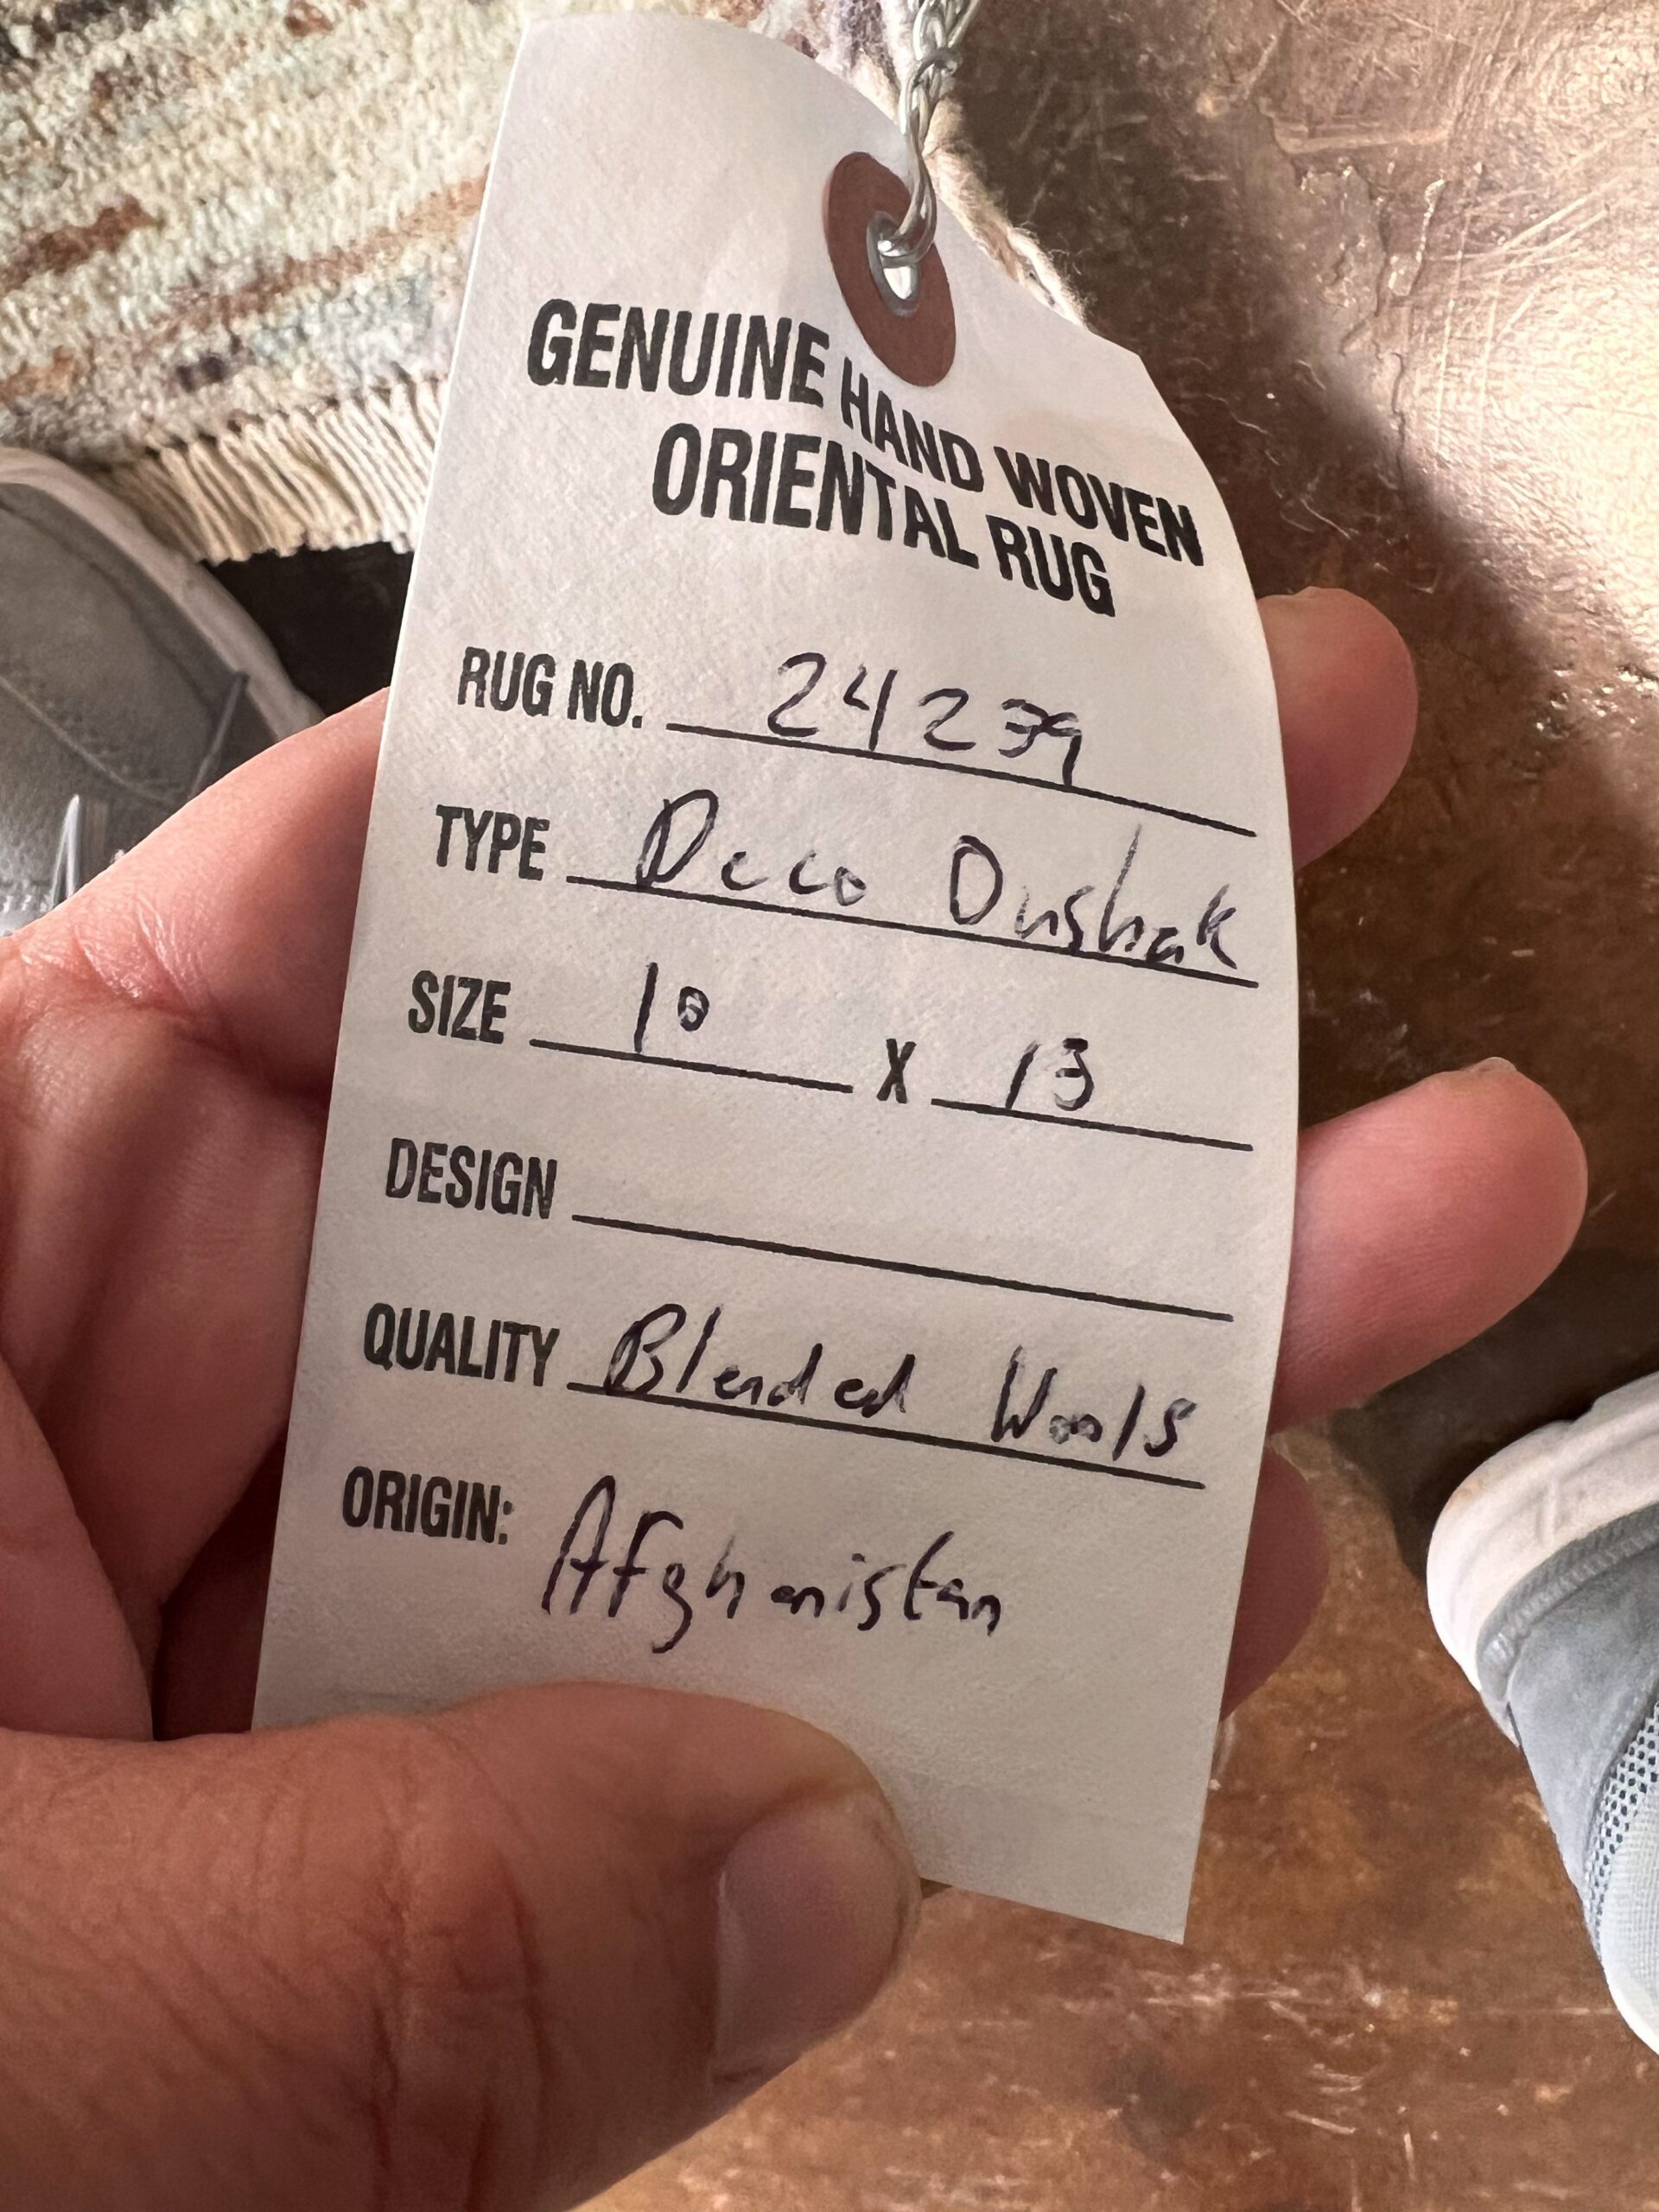 GENUINE HAND WOVEN
ORIENTAL RUG
RUG NO. 24239
TYPE Deco Oushak
SIZE 10 X 13
DESIGN
QUALITY Blended Wools
ORIGIN: Afghanistan